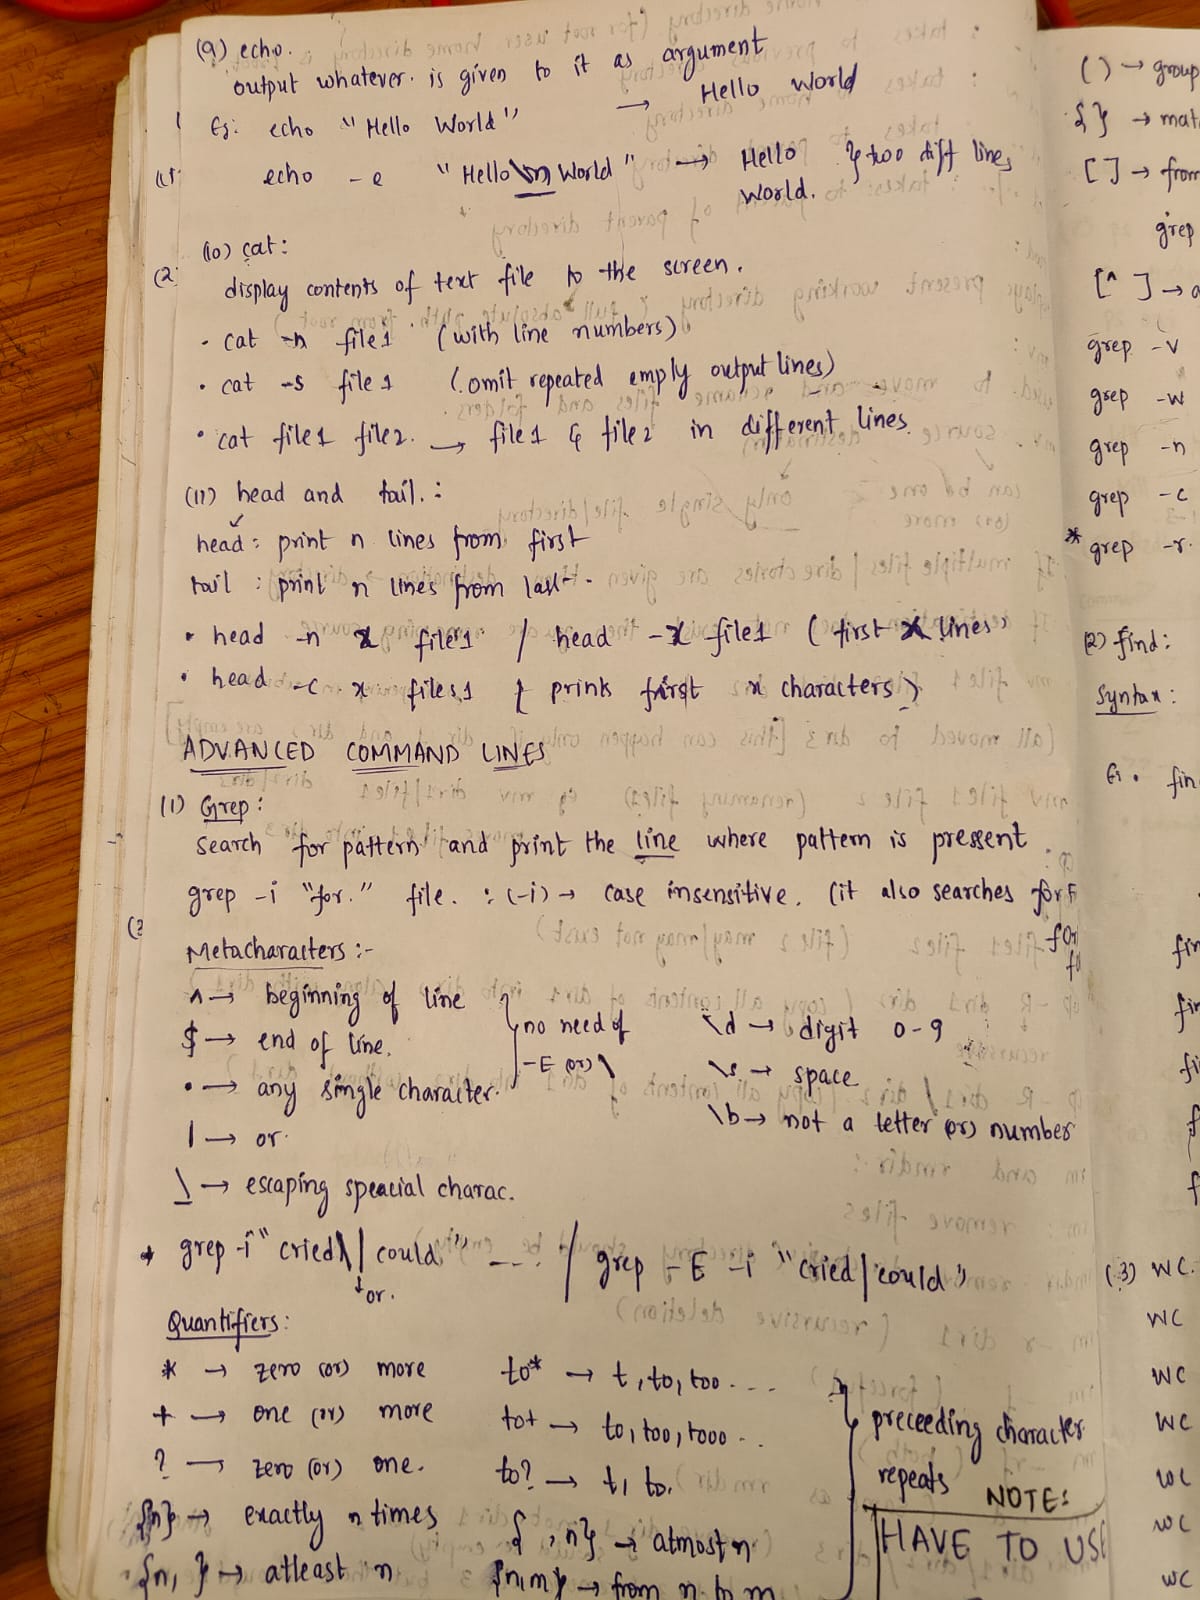 (9) echo.
output whatever. is given to it as argument
Eg: echo "Hello World" → Hello World
echo -e "Hello\n World" → Hello } two diff lines
World.
(10) cat:
display contents of text file to the screen.
• cat -n file1 (with line numbers)
• cat -s file1 (omit repeated empty output lines)
• cat file1 file2. → file1 & file2 in different lines.
(11) head and tail. :
head: print n lines from first
tail : print n lines from last.
• head -n x file1 / head -x file1 (first x lines)
• head -c x file1 { prints first x characters }
ADVANCED COMMAND LINES
(1) Grep:
Search for pattern and print the line where pattern is present.
grep -i "for." file. : (-i) → case insensitive. (it also searches for F
fOr
Metacharacters :-
^ → beginning of line
$ → end of line.
• → any single character.
} no need of
-E (or) \
\d → digit 0-9
\s → space
\b → not a letter (or) number
| → or.
\ → escaping speacial charac.
* grep -i "cried\| could" ---. / grep -E -i "cried|could"
↓or.
Quantifiers:
* → zero (or) more to* → t, to, too ....
+ → one (or) more to+ → to, too, tooo ..
? → zero (or) one. to? → t, to.
{n} → exactly n times { ,n} → atmost n
{n, } → atleast n {n,m} → from n to m
} preceeding character
repeats
NOTE:
HAVE TO USE
( ) → group
{ } →
[ ] → from
grep
[^ ] →
grep -v
grep -w
grep -n
grep -c
* grep -r.
(2) find:
Syntax:
(3) wc.
wc
wc
wc
wc
wc
wc